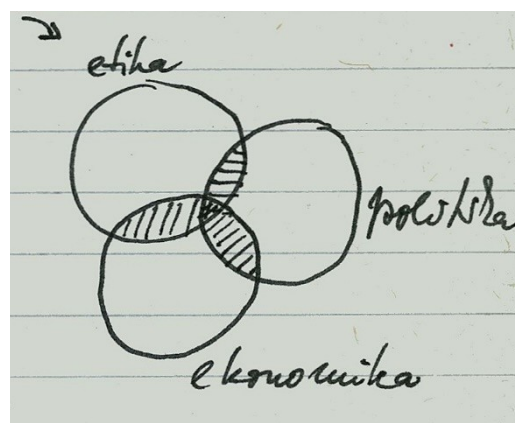 etika
politika
ekonomika